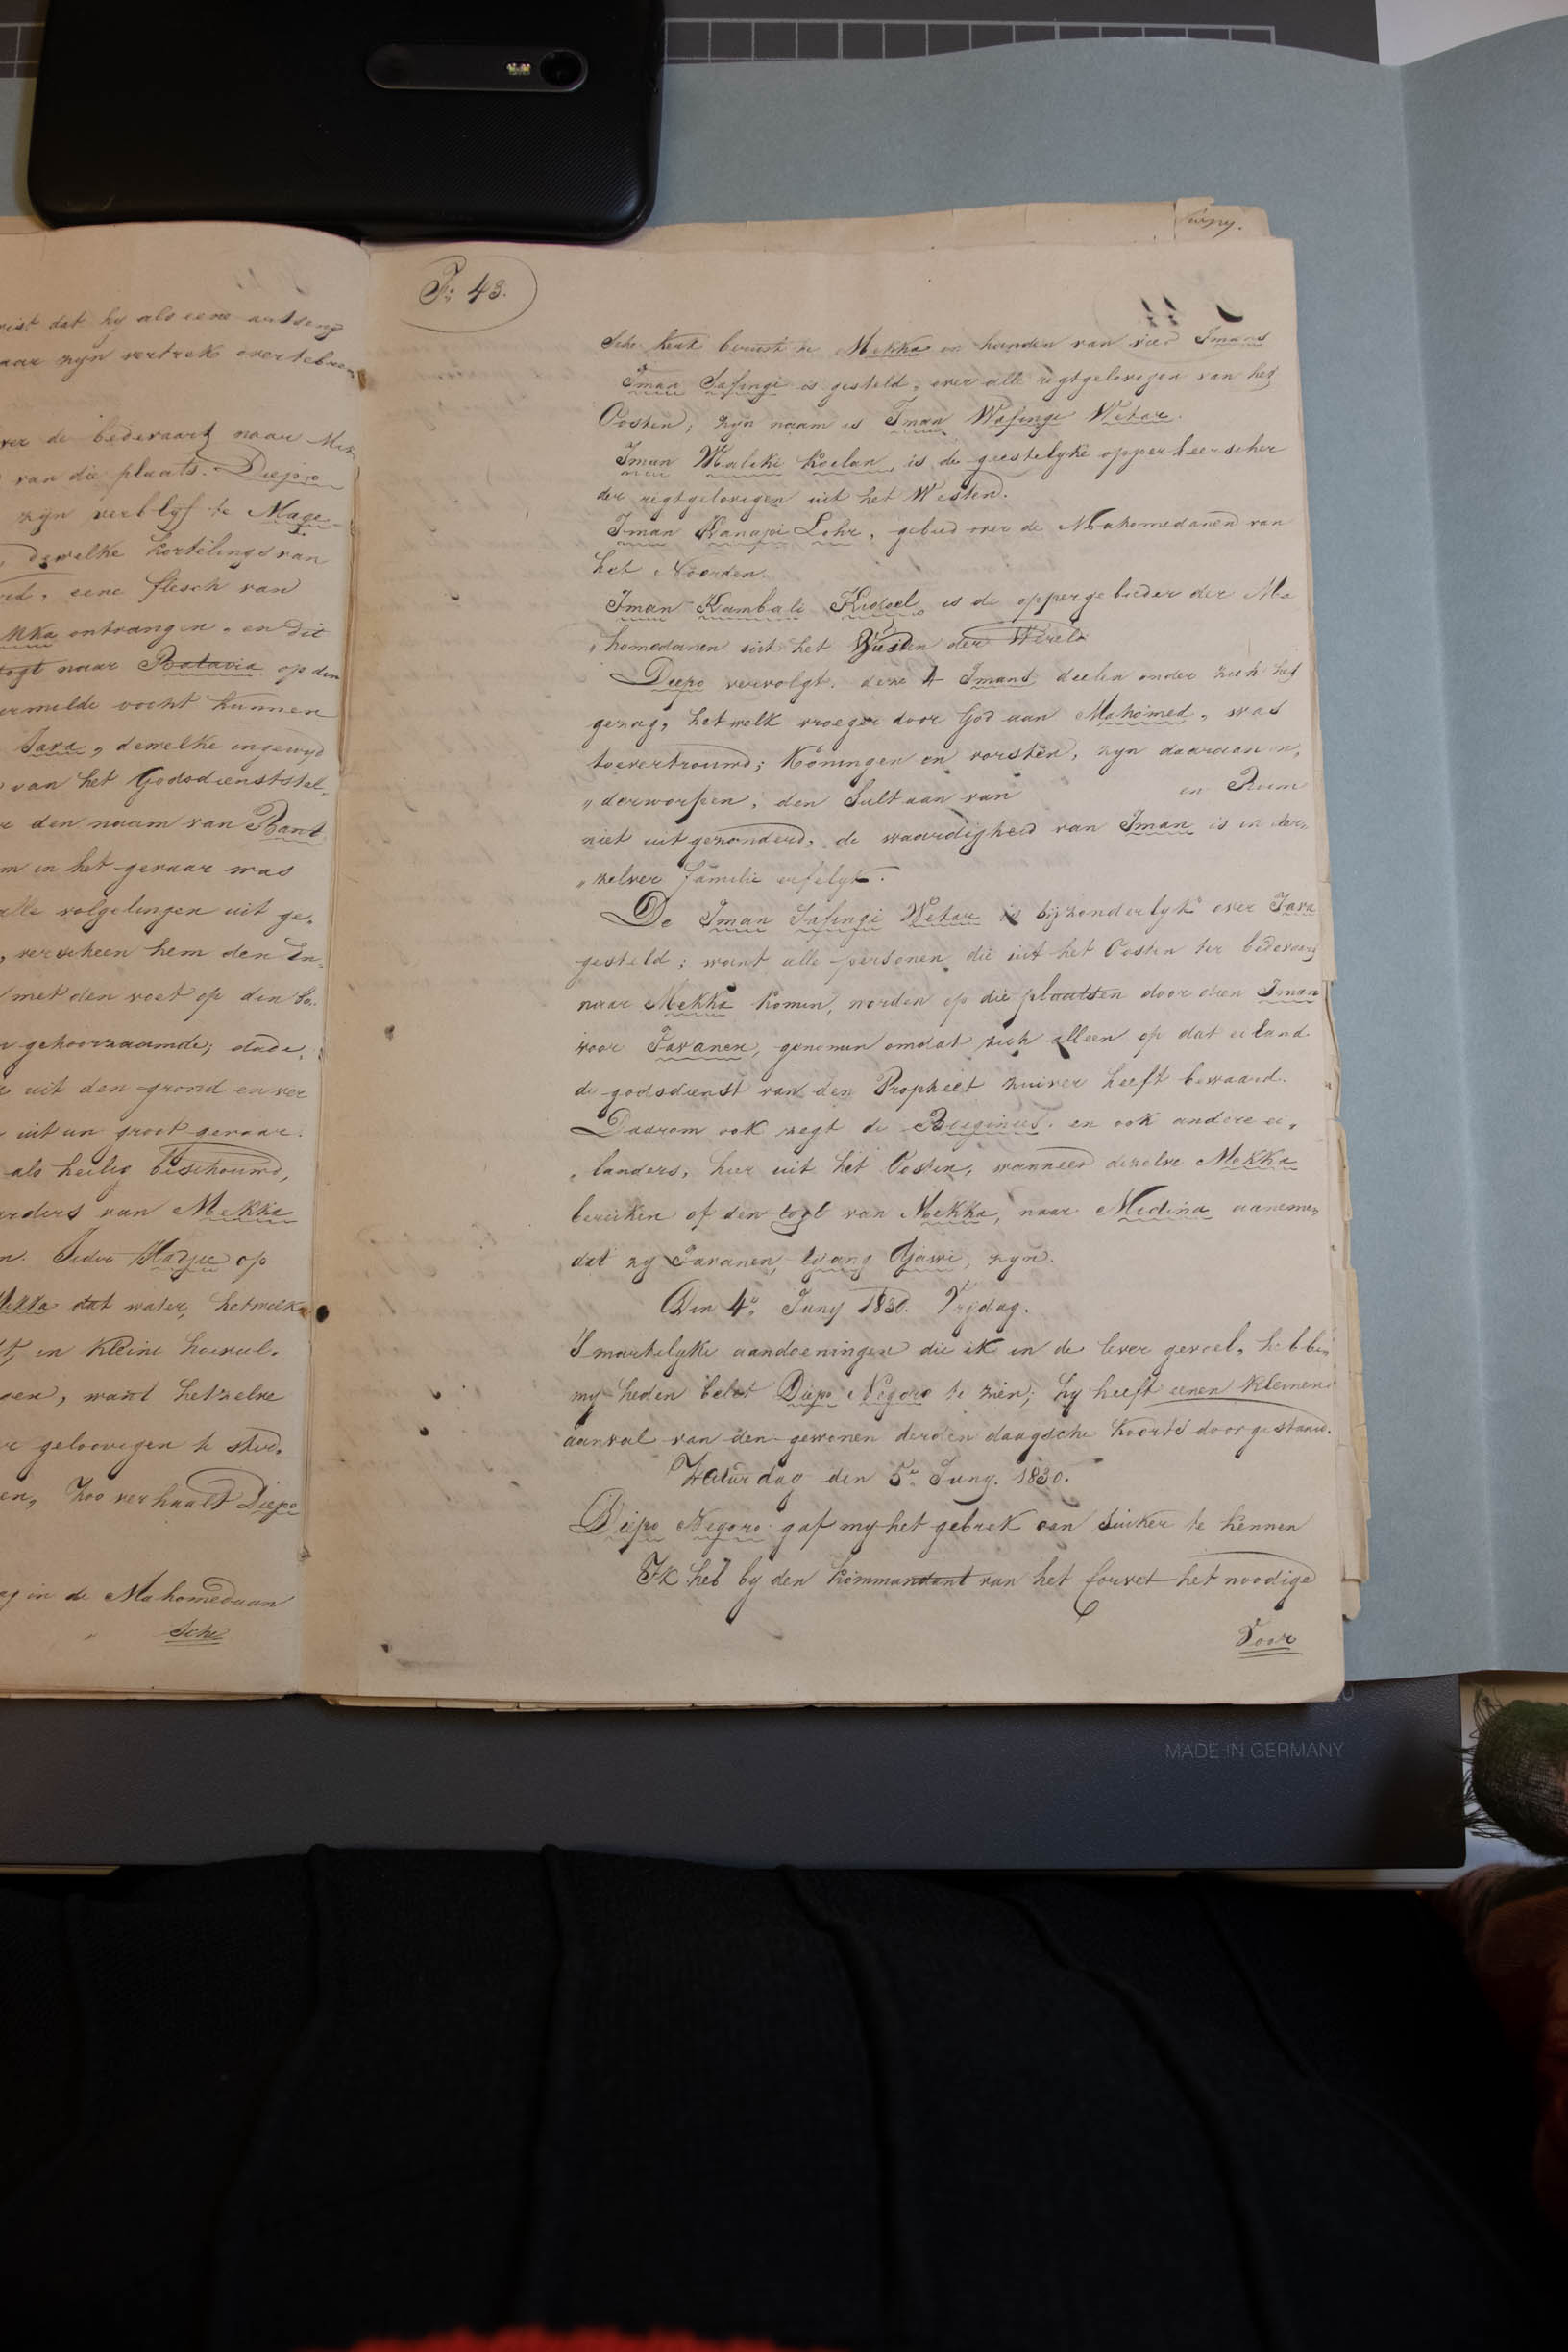 dat hy als eene
aar zyn vertrek
de bedevaart naar Mek
van die plaats. Diepo
zyn verblyf te Mage
dewelke kortelings van
eene flesch van
ontvangen, en dit
togt naar Batavia op den
vermelde vocht kunnen
Java, dewelke ingewyd
van het Godsdienststel,
den naam van Bant
m in het gevaar was
alle volgelingen uit ge,
, verscheen hem den En,
met den voet op den bo.
gehoorzaamde; dade,
uit den grond en ver
uit un groot gevaar.
als heilig beschouwd,
van Mekka
n. Ieder Hadjie op
Mekka dat water, hetwelk
t, in kleine hoeveel.
gen, want hetzelve
geloovigen te
en, Zoo verhaalt Diepo
in de Mahomedaan
Sche
Tusny.
P: 43.
Sche kerk berust te Mekka in handen van vier Imans
Iman Safingi is gesteld, over alle regtgelovigen van het
Oosten; zyn naam is Iman Wafingi Wetar.
Iman Maliki Koelan, is de geestelyke opperheerscher
der regtgelovigen uit het Westen.
Iman Kanapi Lohr, gebied over de Mahomedanen van
het Noorden.
Iman Kambali Kidoel, is de oppergebieder der Ma
„homedanen uit het Zuiden der Wereld
Diepo vervolgt, deze 4 Imans deelen onder zich het
gezag, hetwelk vroeger door God aan Mahomed, was
toevertrouwd; Koningen en vorsten, zyn daaraan on,
„derworpen, den Sultaan van en Roem
niet uitgezonderd, de waardigheid van Iman is in der,
„zelver familie erfelyk.
De Iman Safingi Wetar is byzonderlyk over Java
gesteld; want alle personen die uit het Oosten ter bedevaart
naar Mekka komen, worden op die plaatsen door dien Iman
voor Javanen, genomen omdat zich alleen op dat eiland
de godsdienst van den Propheet zuiver heeft bewaard.
Daarom ook zegt de Bueginees, en ook andere ei,
„landers, hier uit het Oosten, wanneer dezelve Mekka
bereiken of den togt van Mekka, naar Medina aannemen
dat zy Javanen, Wang Djawi, zyn.
Den 4e Juny 1830. Vrydag.
Smartelyke aandoeningen die ik in de lever gevoel, hebben
my heden belet Diepo Negoro te zien; hy heeft eenen kleinen
aanval van den gewonen derden daagsche koorts doorgestaan.
Zaturdag den 5e Juny. 1830.
Diepo Negoro gaf my het gebrek aan suiker te kennen
Ik heb by den kommandant van het korvet het noodige
Voor
MADE IN GERMANY